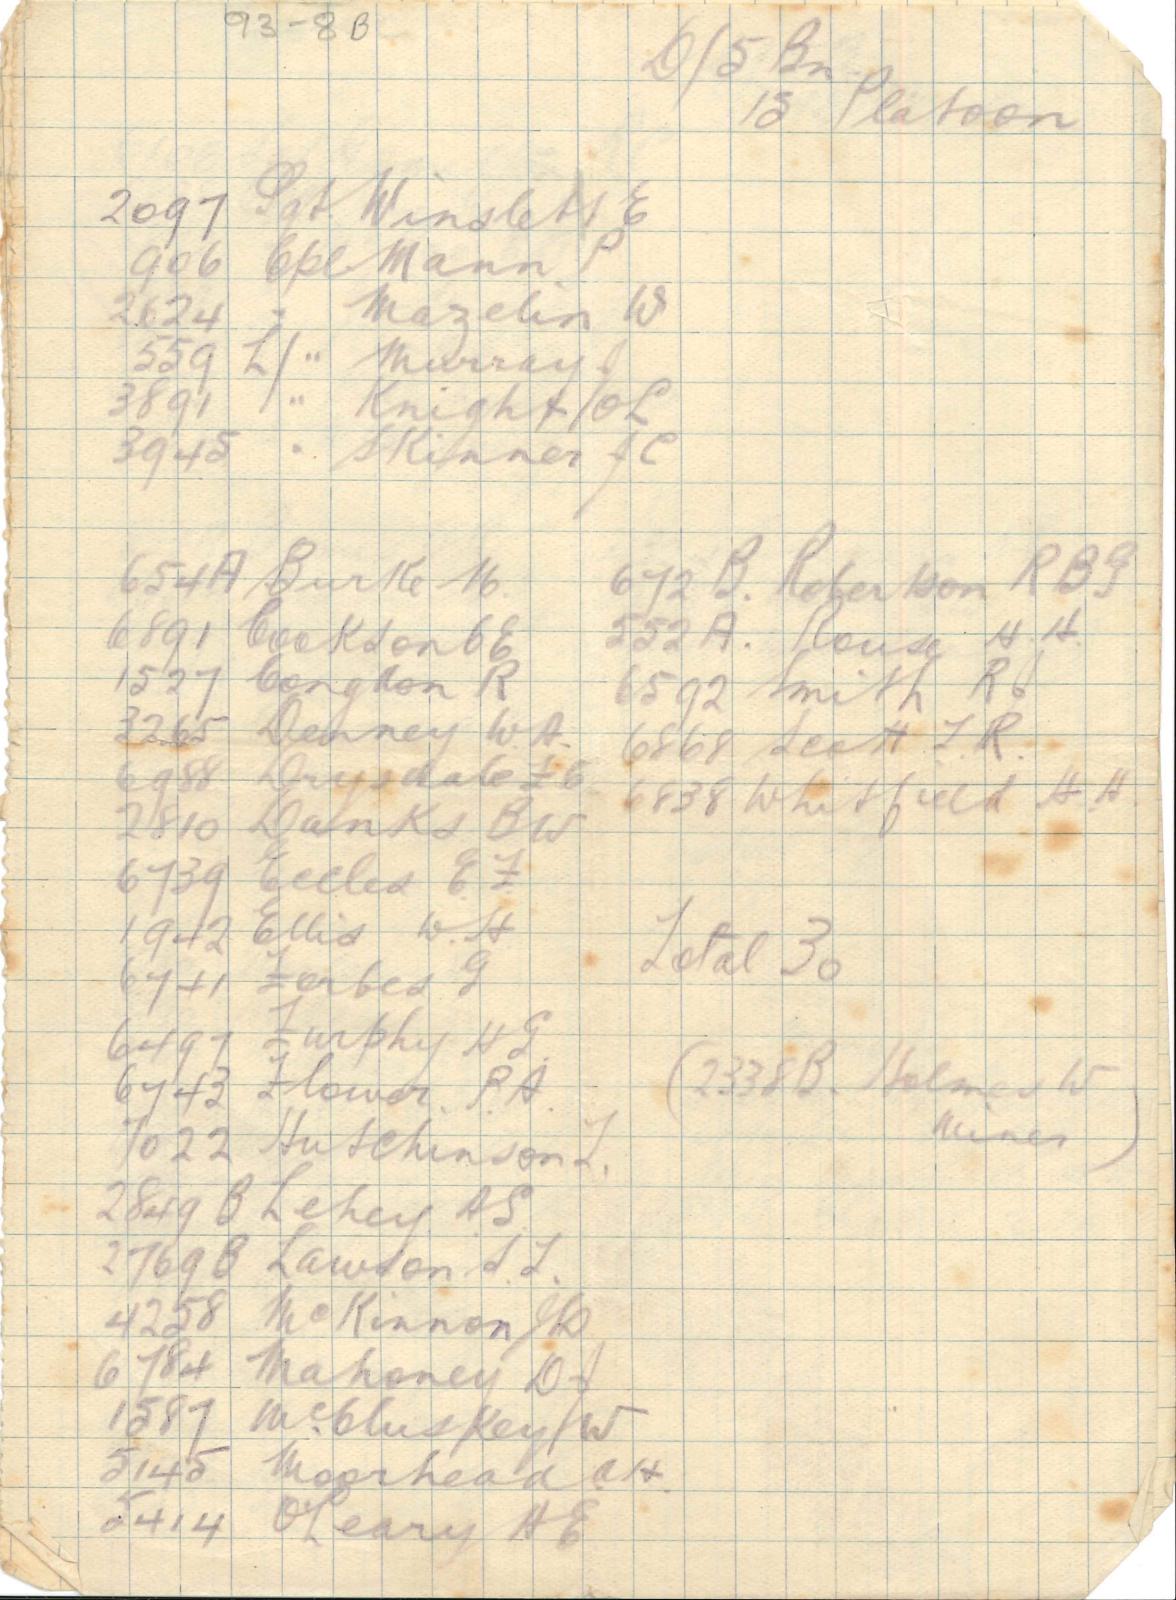 93-8B
D/5 Bn
15 Platoon
2097 Sgt Winslett E
906 Cpl Mann P
2624 " Mazelin W
559 L/" Murray J
3891 /" Knight OL
3945 " Skinner JC
654A Burke M.
6891 Cookson CE
1527 Congdon R
3265 Denney W.A.
6988 Drysdale F C
2810 Danks BW
6739 Eccles E F
1942 Ellis W.H
6741 Forbes G
6497 Furphy H G.
6743 Flower. P.A.
7022 Hutchinson F.
2849 B Lehey AG
2769 B Lawson S.F.
4258 McKinnon JD
6784 Mahoney D J
1587 McCluskey W
5145 Moorhead A H.
5414 O'Leary H E
672 B. Robertson R B G
552 A. Rouse H.H.
6592 Smith R J
6868 Scott F.R.
6838 Whitfield H.H.
Total 30
(2338B. Holmes W
Miner)